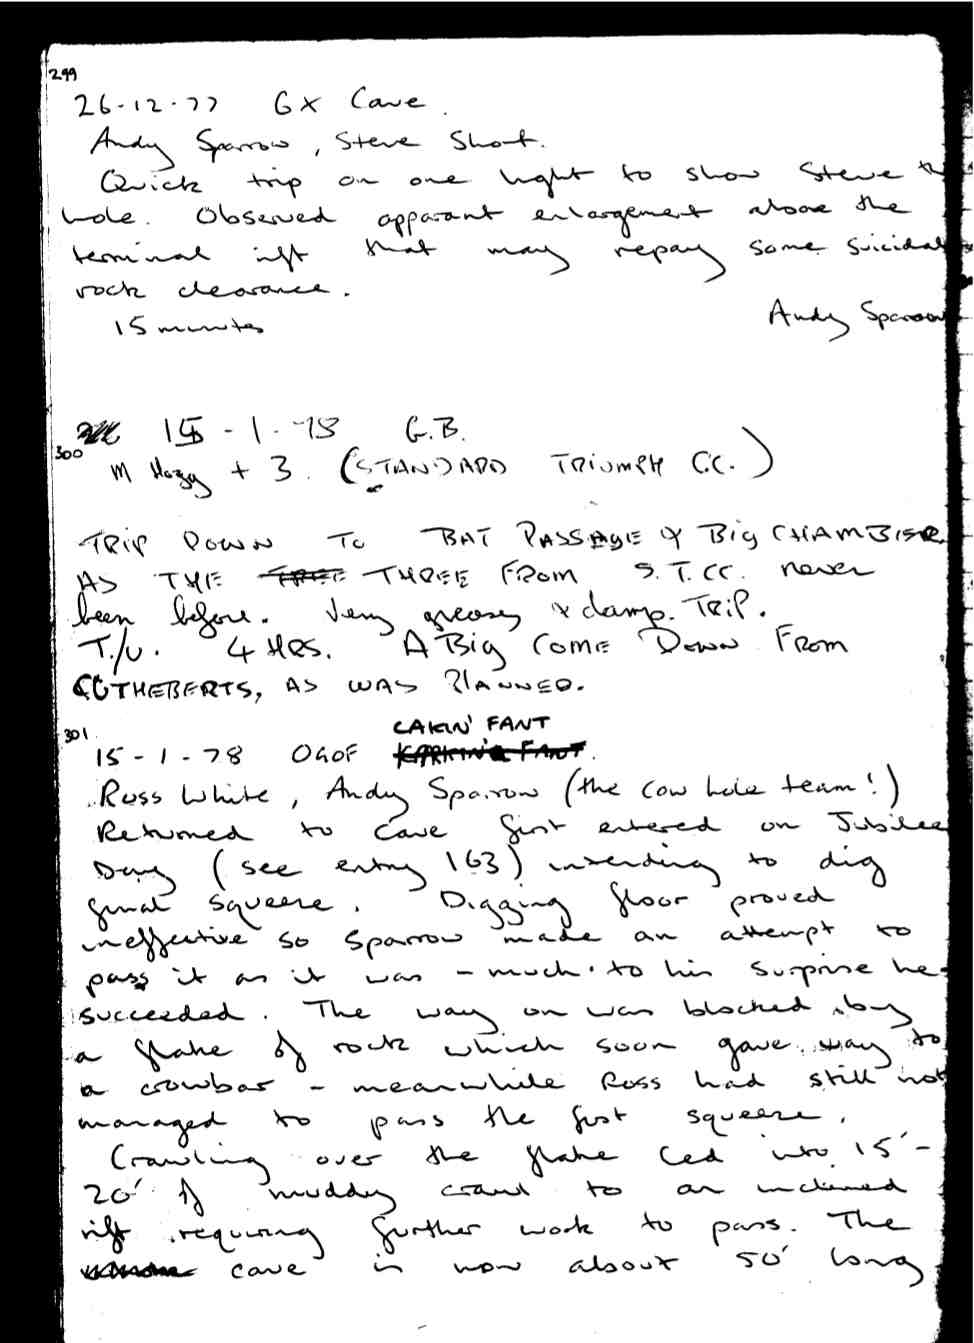 299
26-12-77 GX Cave.
Andy Sparrow, Steve Short.
Quick trip on one light to show Steve the
hole. Observed apparant enlargement above the
terminal rift that may repay some suicidal
rock clearance.
15 minutes
Andy Sparrow
300
15-1-78 G.B.
M Hazy + 3. (STANDARD TRIUMPH C.C.)
TRIP DOWN TO BAT PASSAGE & Big CHAMBER
AS THE THREE FROM S.T.CC. never
been before. Very greasy & damp. TRiP.
T./U. 4 HRS. A Big COME DOWN FROM
CUTHEBERTS, AS WAS PLANNED.
301
CAKIN' FANT
15-1-78 OGOF
Ross White, Andy Sparrow (the Cow hole team!)
Returned to Cave first entered on Jubilee
Day (see entry 163) intending to dig
final squeeze. Digging floor proved
ineffective so Sparrow made an attempt to
pass it as it was - much to his surprise he
succeeded. The way on was blocked by
a flake of rock which soon gave way to
a crowbar - meanwhile Ross had still not
managed to pass the first squeeze.
Crawling over the flake led into 15'-
20' of muddy crawl to an inclined
rift requiring further work to pass. The
cave is now about 50' long